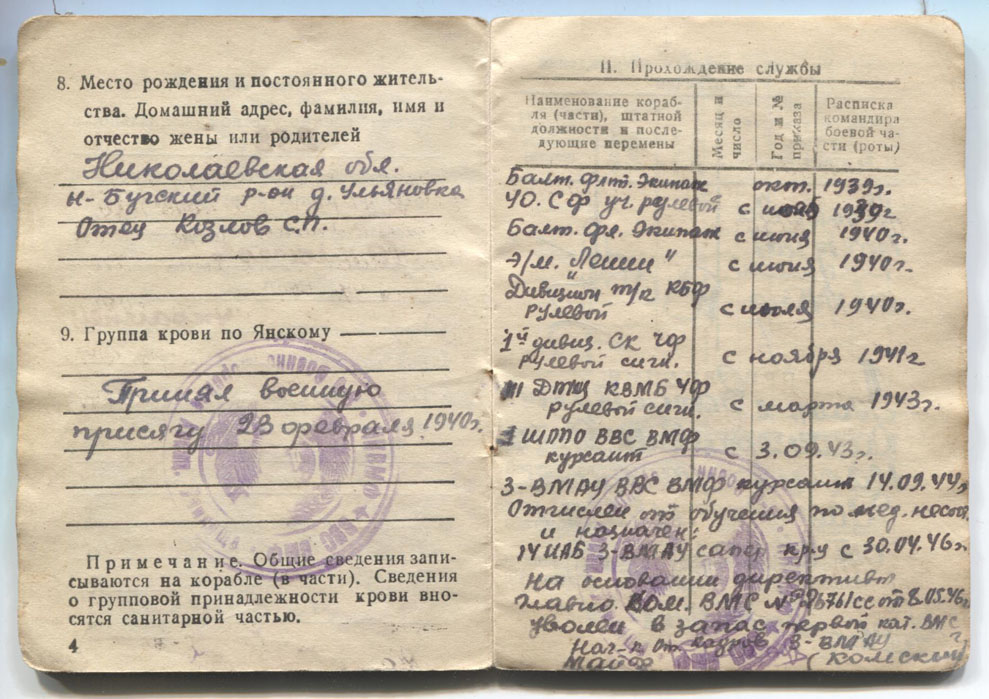 8. Место рождения и постоянного житель-
ства. Домашний адрес, фамилия, имя и
отчество жены или родителей
Николаевская обл.
Н-Бугский р-он д. Ульяновка
Отец Козлов С.П.
9. Группа крови по Янскому
Принял военную
присягу 23 февраля 1940г.
Примечание. Общие сведения запи-
сываются на корабле (в части). Сведения
о групповой принадлежности крови вно-
сятся санитарной частью.
4
II. Прохождение службы
Наименование кораб-
ля (части), штатной
должности и после-
дующие перемены
Месяц и
число
Год и №
приказа
Расписка
командира
боевой ча-
сти (роты)
Балт. флт. Экипаж окт. 1939г.
УО. СФ уч. рулевой с 1939г
Балт. фл. Экипаж с июня 1940г.
Э/м. "Ленин" с июня 1940г.
Дивизион т/к КБФ
рулевой с июля 1940г.
1й дивиз. СК ЧФ
рулевой сигн. с ноября 1941г
ДТЩ КВМБ ЧФ
рулевой сигн. с марта 1943г.
ШППО ВВС ВМФ
курсант с 3.09.43г.
3-ВМАУ ВВС ВМФ курсант 14.09.44г.
Отчислен от обучения по мед. несоот.
и назначен:
14 УАБ 3-ВМАУ сапер кр-ц с 30.04.46г.
На основании директивы
Главно. Ком. ВМС № от 8.05.46г
уволен в запас первой кат. ВМС
Нач-к от. кадров 3-ВМАУ
Майор (Комский